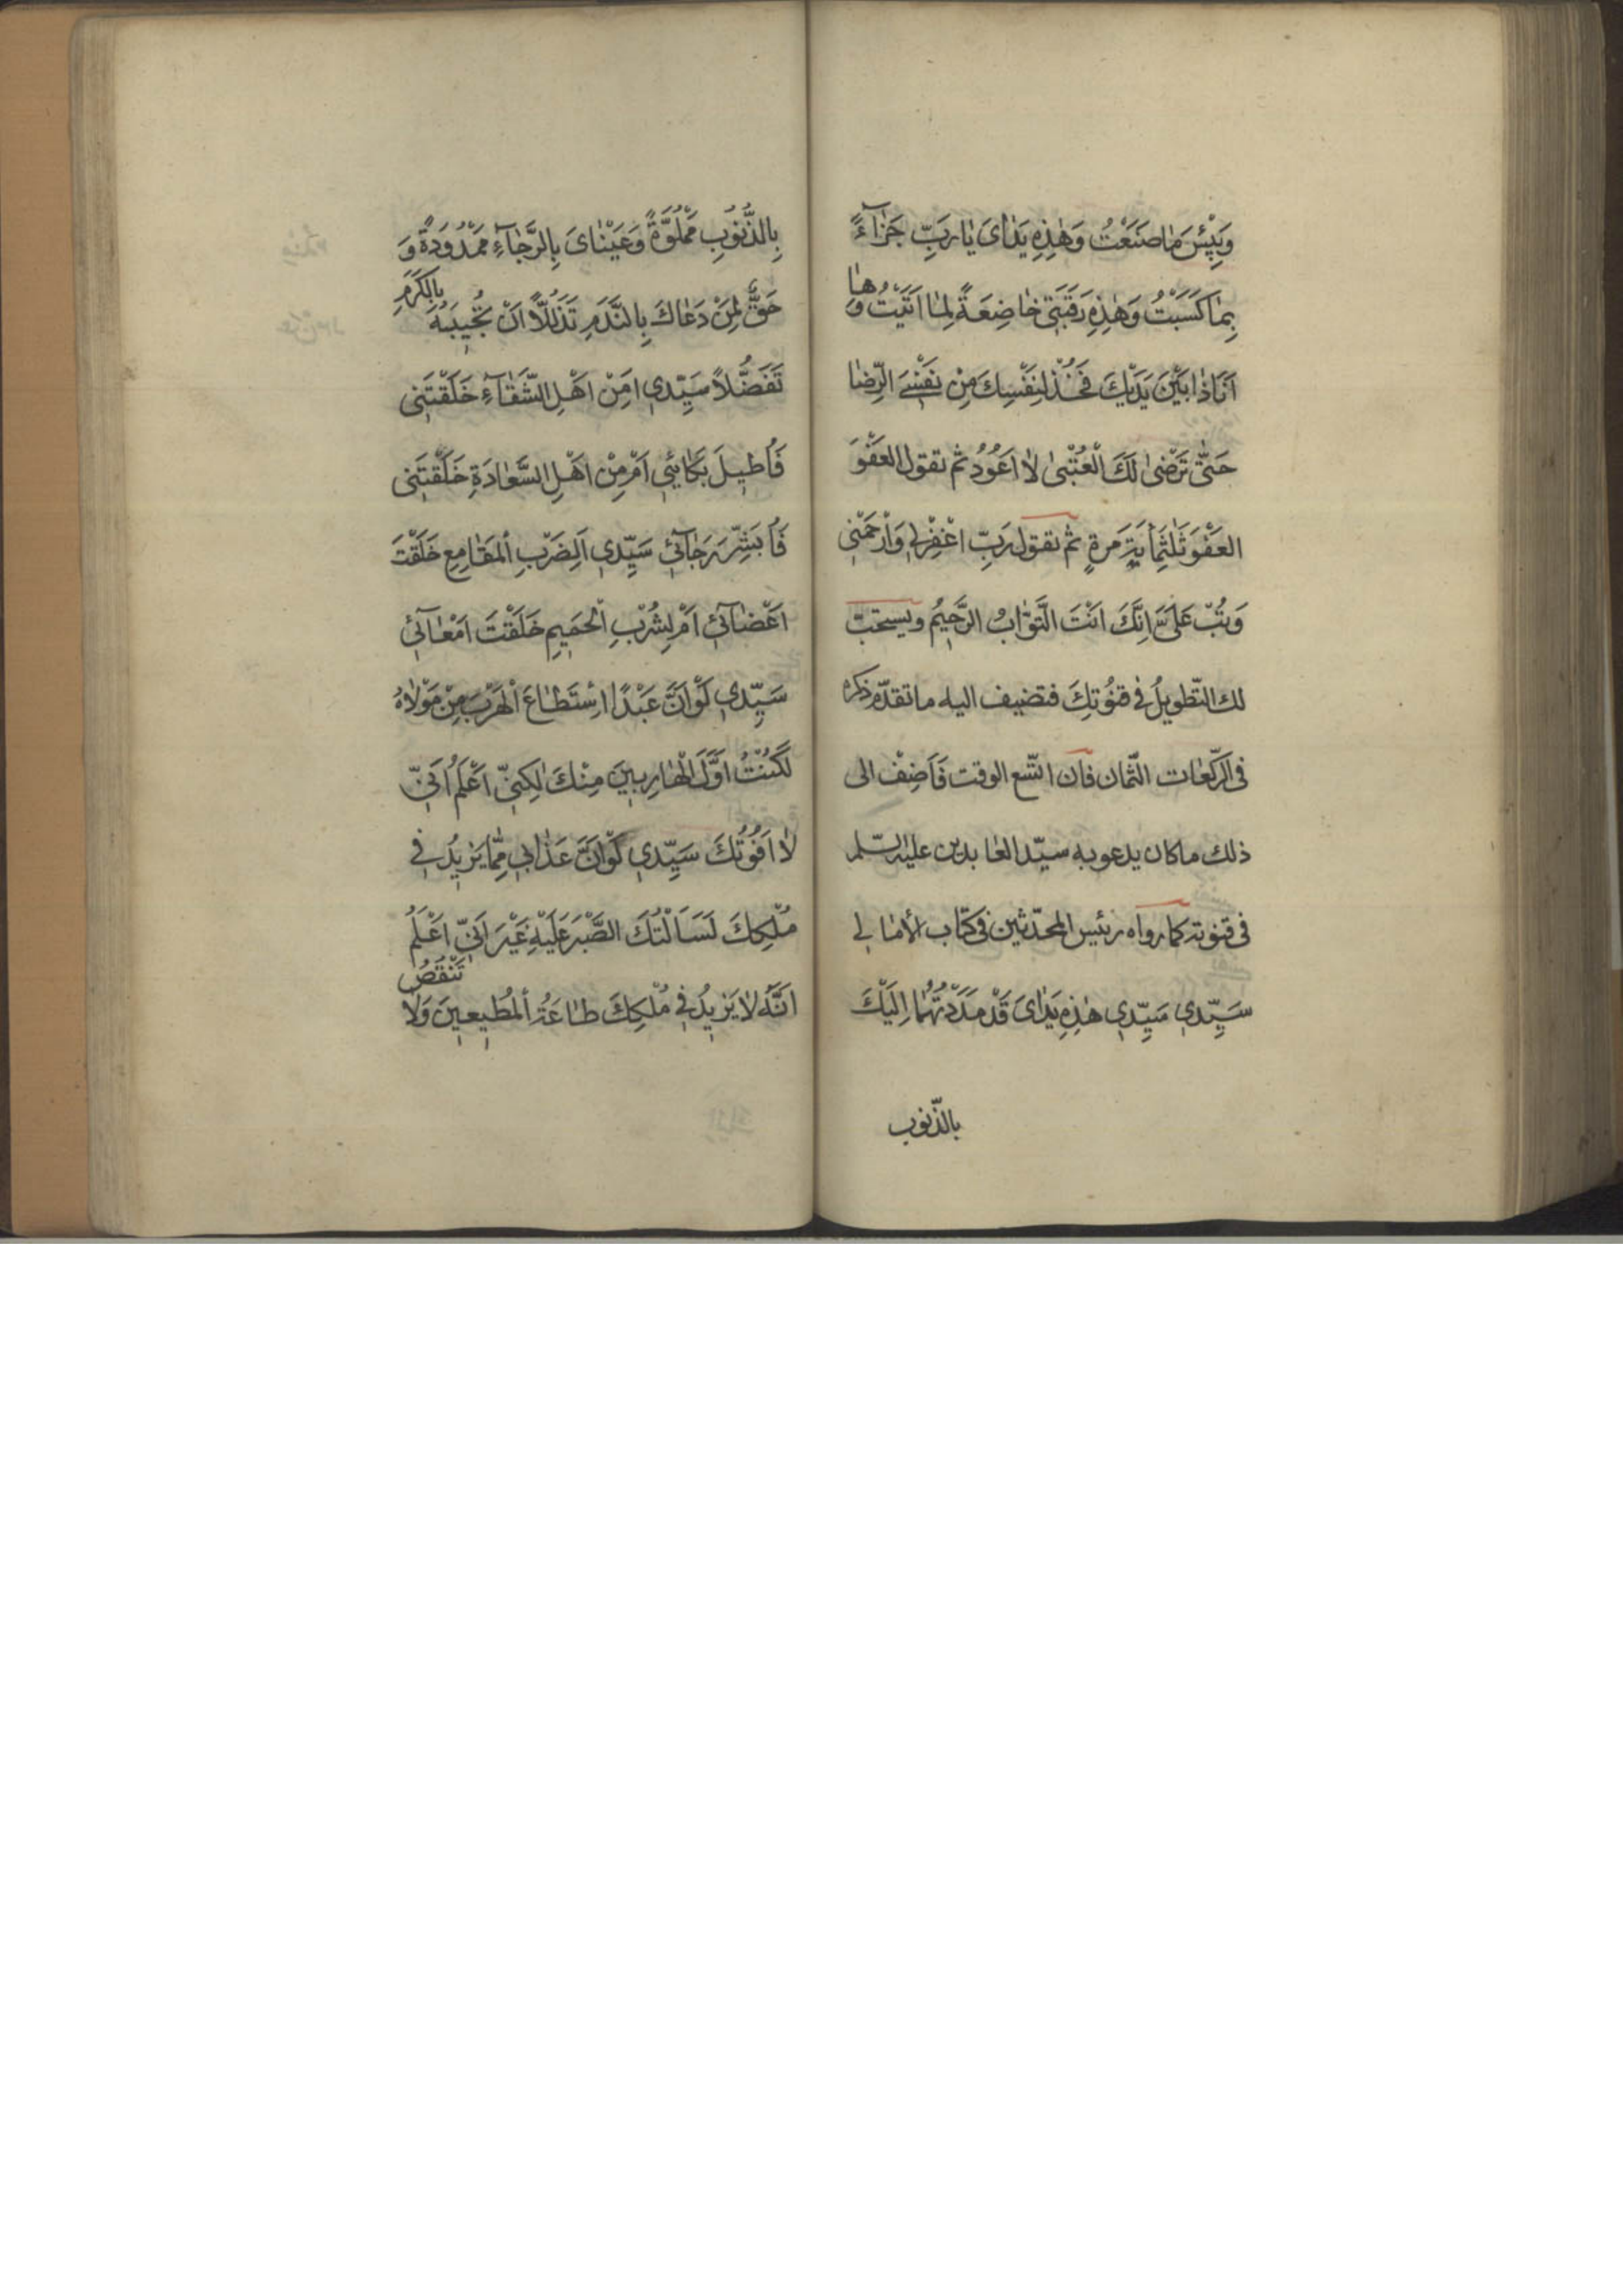 وَبِئْسَ مٰا صَنَعْتُ وَهٰذِهِ يَدٰاىَ يٰا رَبِّ جَزٰآءً
بِمٰا كَسَبْتُ وَهٰذِهِ رَقَبَتِي خٰاضِعَةً لِمٰا اَتَيْتُ وَهٰا
اَنَا ذٰا بَيْنَ يَدَيْكَ فَخُذْ لِنَفْسِكَ مِنْ نَفْسِيَ الرِّضٰا
حَتّٰى تَرْضىٰ لَكَ الْعُتْبىٰ لاٰ اَعُوُدُ ثم تقول العَفْوَ
العَفْوَ ثَلٰثَمِائَةِ مَرةٍ ثم تقول رَبِّ اغْفِرْلِي وَارْحَمْنِي
وَتُبْ عَلَيَّ اِنَّكَ اَنْتَ التَّوّٰابُ الرَّحِيمُ ويستحبّ
لك التّطويلُ في قنُوتِكَ فتضيف اليه ما تقدّم ذكره
فى الرّكعٰات الثّمان فان اتّسع الوقت فَاَضِفْ الى
ذلك ما كان يدعو به سيّد العٰابدين عليه السّلم
فى قنوته كما رواه رئيس المحدّثين فى كتاب الأمٰالي
سَيِّدي سَيِّدي هٰذِهِ يَدٰاىَ قَدْ مَدَدْتُهُمٰا اِلَيْكَ
بالذّنوب
بِالذُّنُوُبِ مَمْلُوَّةً وَعَيْنٰاىَ بِالرَّجٰاءِ مَمْدُوَدَةً وَ
حَقٌّ لِمَنْ دَعٰاكَ بِالنَّدَمِ تَذَلُّلاً اَنْ تُجُيبَهُ بِالكَرَمِ
تَفَضُّلاً سَيِّدي اَمِنْ اَهْلِ الشَّقٰآءِ خَلَقْتَنِى
فَاُطيِلَ بَكٰائِي اَمْ مِنْ اَهْلِ السَّعٰادَةِ خَلَقْتَنِى
فَاُبَشِّرَ رَجٰآئِي سَيِّدي اَلِضَرْبِ اْلمَقٰامِعِ خَلَقْتَ
اَعْضٰآئِي اَمْ لِشُرْبِ اْلحَمَيمِ خَلَقْتَ اَمْعٰآئِي
سَيِّدي لَوْ اَنَّ عَبْدًا اسْتَطٰاعَ اْلهَرَبَ مِنْ مَوْلاٰهُ
لَكُنْتُ اَوَّلَ الْهٰارِبيِنَ مِنْكَ لٰكِنّيِ اَعْلَمُ اَنّيِ
لاٰ اَفُوُتُكَ سَيِّدي لَوْ اَنَّ عَذٰابِي مِمّٰا يَزيِدُ في
مُلْكِكَ لَسَاَلْتُكَ الصَّبْرَ عَلَيْهِ غَيْرَ اَنّيِ اَعْلَمُ
اَنَّهُ لاٰ يَزيِدُ في مُلْكِكَ طٰاعَةُ اْلمُطيِعيِنَ وَلاٰ تَنْقُصُ